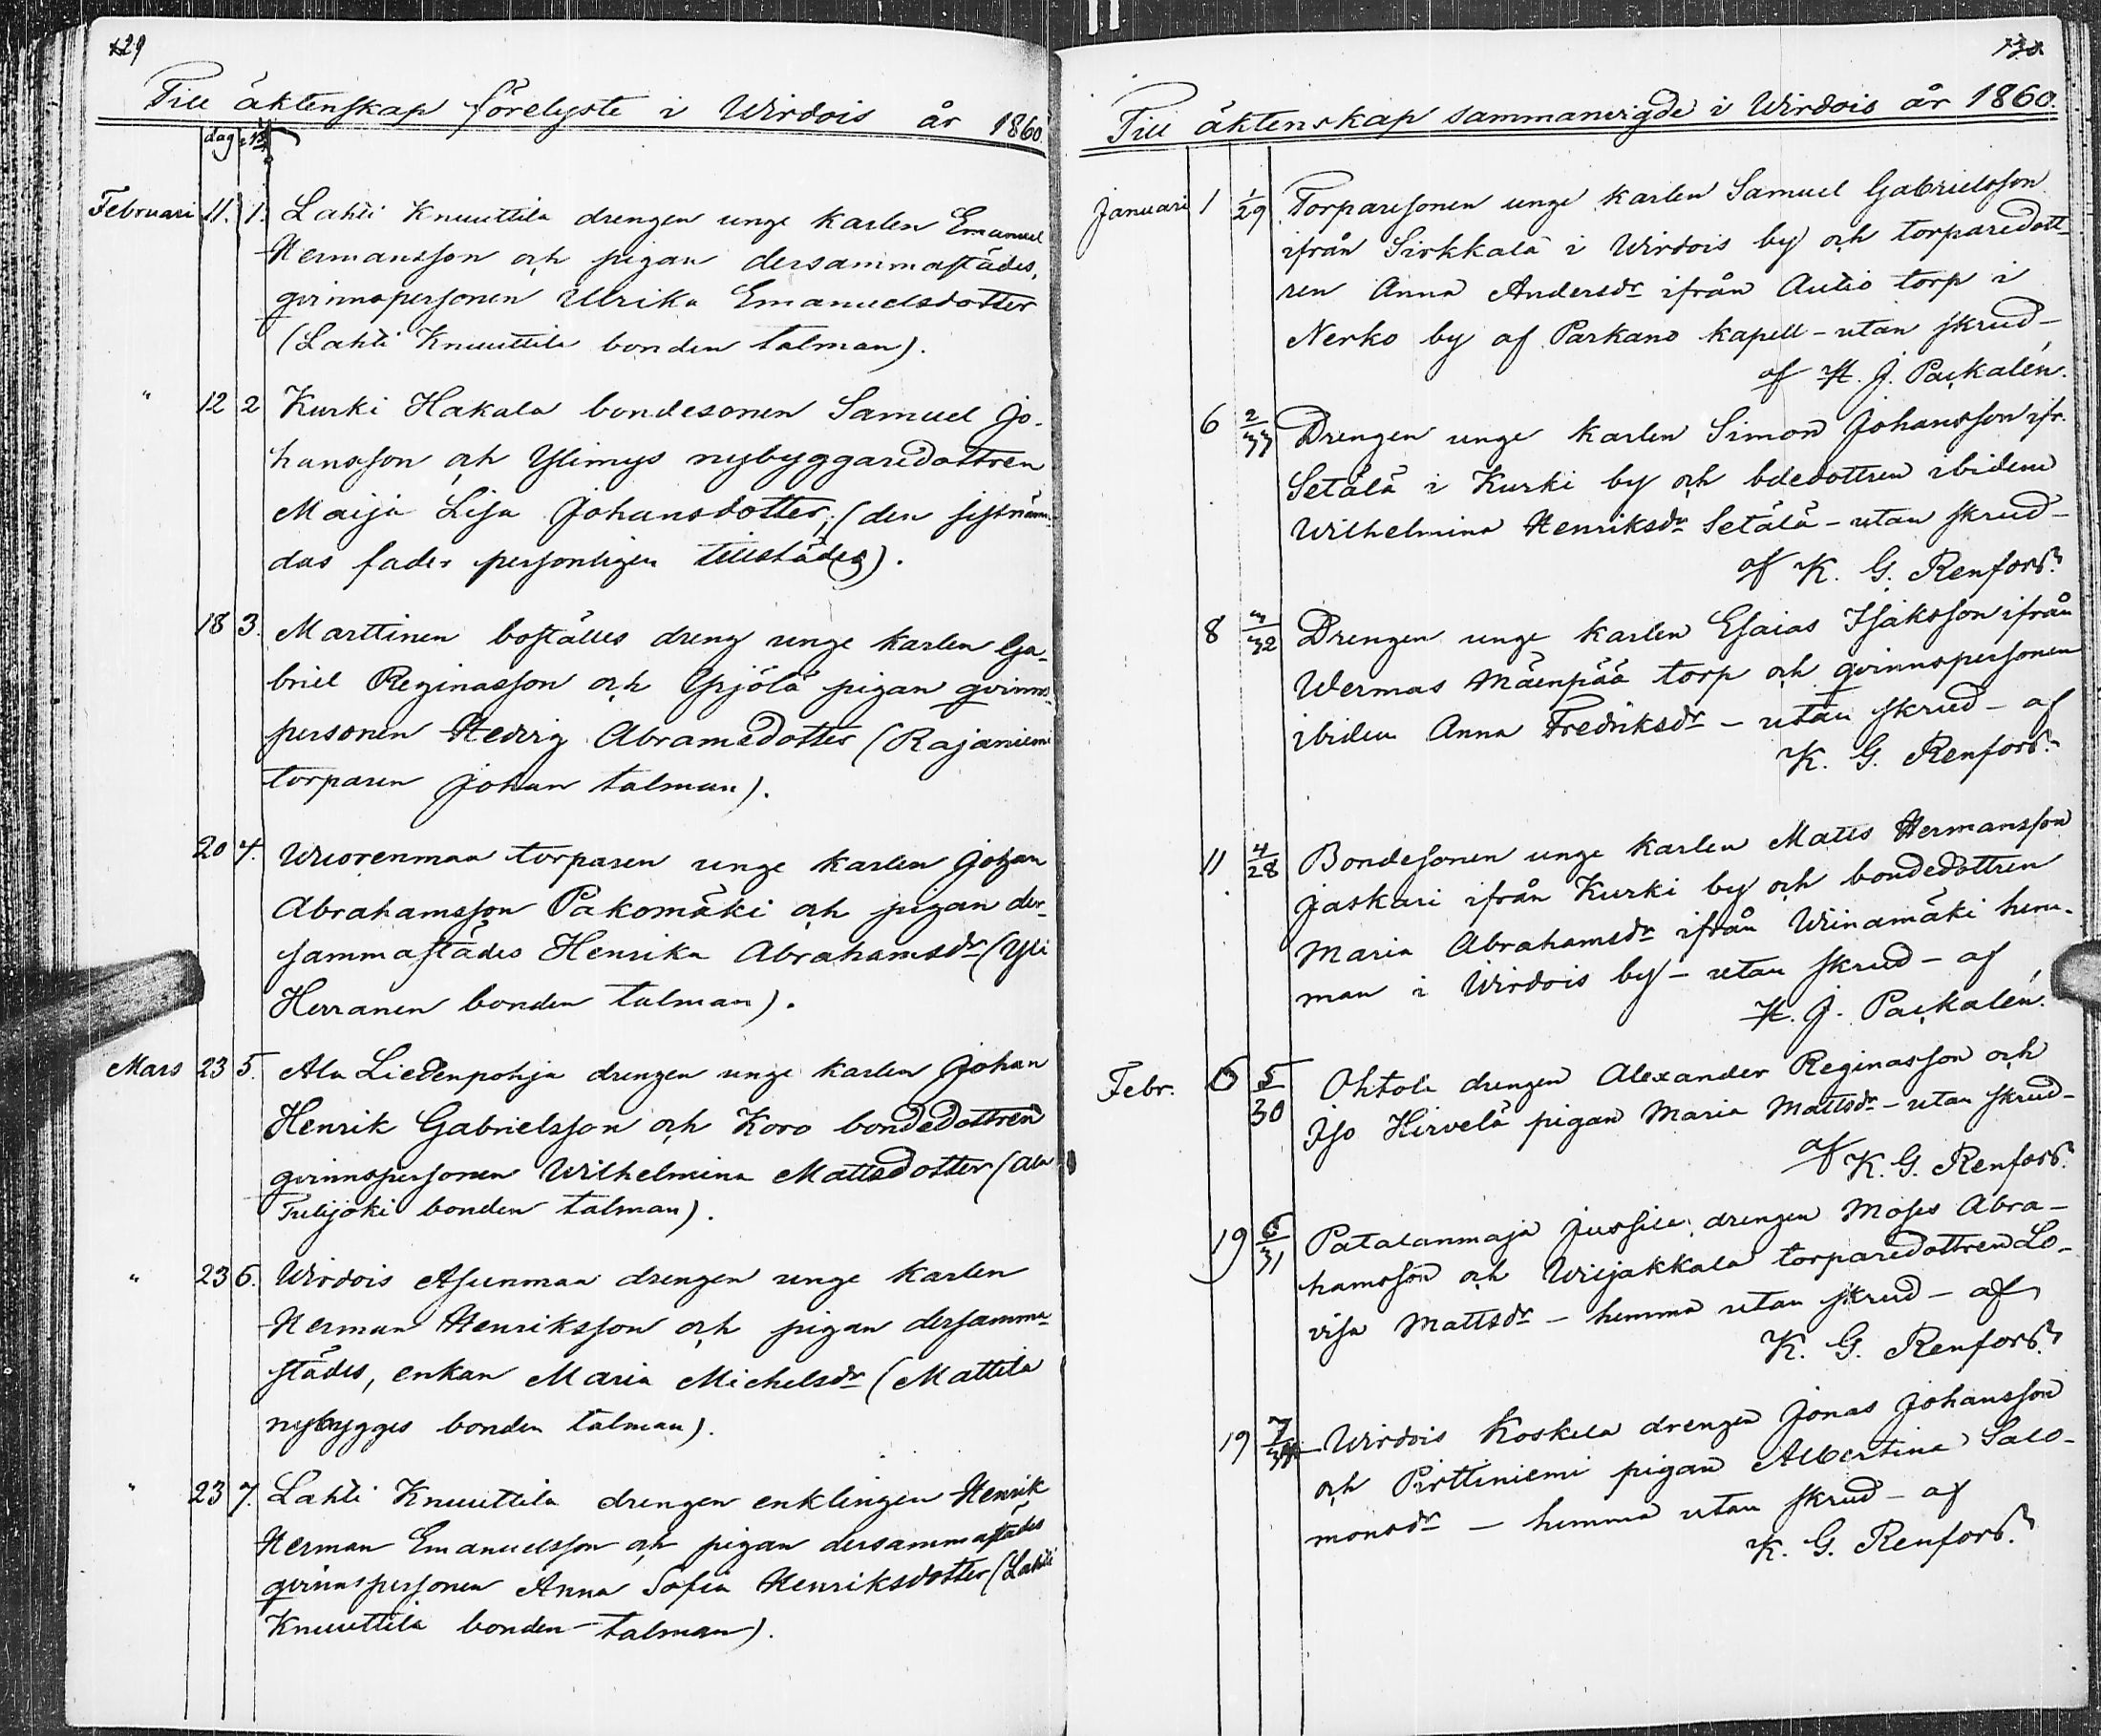 129
Till äktenskap förelyste i Wirdois år 1860.
dag No
Februari 11. 1. Lahti Knuuttila drengen unge karlen Emanuel
Hermansson och pigan dersammastädes,
qvinnspersonen Ulrika Emanuelsdotter
(Lahti Knuuttila bonden talman).
" 12 2 Kurki Hakala bondesonen Samuel Jo-
hansson och Ylimys nybyggaredottren
Maija Lisa Johansdotter, (den sistnäm-
das fader personligen tillstädes).
18 3. Marttinen boställes dreng unge karlen Ga-
briel Reginasson och Yrjölä pigan qvinns-
personen Hedvig Abramsdotter (Rajaniemi
torparen Johan talman).
20 4. Wuorenmaa torparen unge karlen Johan
Abrahamsson Pakomäki och pigan der-
sammastädes Henrika Abrahamsdr (Yli
Herranen bonden talman).
Mars 23 5. Ala Liedenpohja drengen unge karlen Johan
Henrik Gabrielsson och Koro bondedottren
qvinnspersonen Wilhelmina Mattsdotter (Ala
Tulijoki bonden talman).
" 23 6. Wirdois Asunmaa drengen unge karlen
Herman Henriksson och pigan dersamma-
städes, enkan Maria Michelsdr (Mattila
nybygges bonden talman).
" 23 7. Lahti Knuuttila drengen enklingen Henrik
Herman Emanuelsson och pigan dersammastädes
qvinnspersonen Anna Sofia Henriksdotter (Lahti
Knuuttila bonden talman).
130
Till äktenskap sammanvigde i Wirdois år 1860.
Januari 1 1/29 Torparesonen unge karlen Samuel Gabrielsson
ifrån Sirkkala i Wirdois by och torparedott-
ren Anna Andersdr ifrån Autio torp i
Nerko by af Parkano kapell - utan skrud -
af H. J. Packalén.
6 2/33 Drengen unge karlen Simon Johansson ifr.
Setälä i Kurki by och bdedottren ibidem
Wilhelmina Henriksdr Setälä - utan skrud -
af K. G. Renfors.
8 3/32 Drengen unge karlen Esaias Isaksson ifrån
Wermas Mäenpää torp och qvinnspersonen
ibidem Anna Fredriksdr - utan skrud - af
K. G. Renfors.
11 4/28 Bondesonen unge karlen Matts Hermansson
Jaskari ifrån Kurki by och bondedottren
Maria Abrahamsdr ifrån Wiinamäki hem-
man i Wirdois by - utan skrud - af
H. J. Packalén.
Febr. 6 5/30 Ohtola drengen Alexander Reginasson och
Iso Hirvelä pigan Maria Mattsdr - utan skrud -
af K. G. Renfors.
19 6/31 Patalanmaja Jussila drengen Moses Abra-
hamsson och Wiljakkala torparedottren Lo-
visa Mattsdr - hemma utan skrud - af
K. G. Renfors.
19 7 Wirdois Koskela drengen Jonas Johansson
och Pirttiniemi pigan Albertina Salo-
monsdr - hemma utan skrud - af
K. G. Renfors.